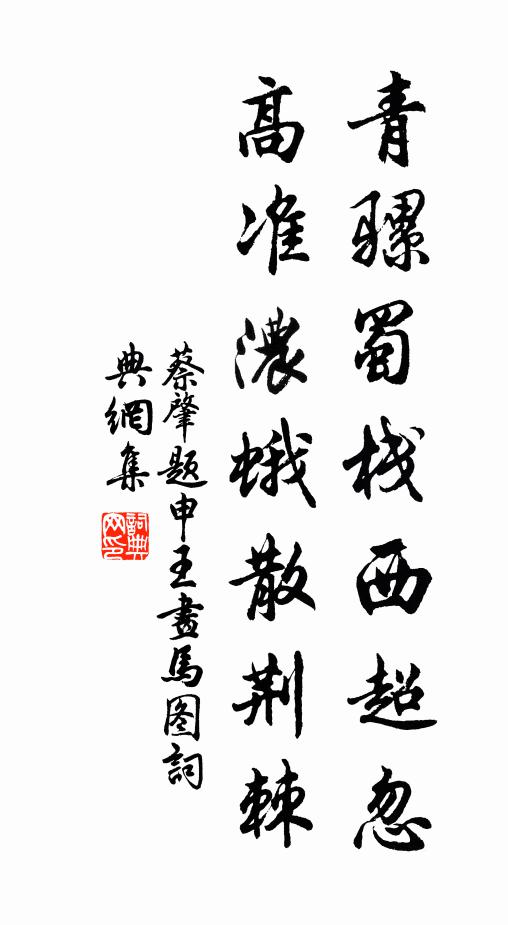 青骡蜀栈西超忽
高准濃蛾散荆棘
蔡肇题申王畫馬图詞
典網集
詞典网印